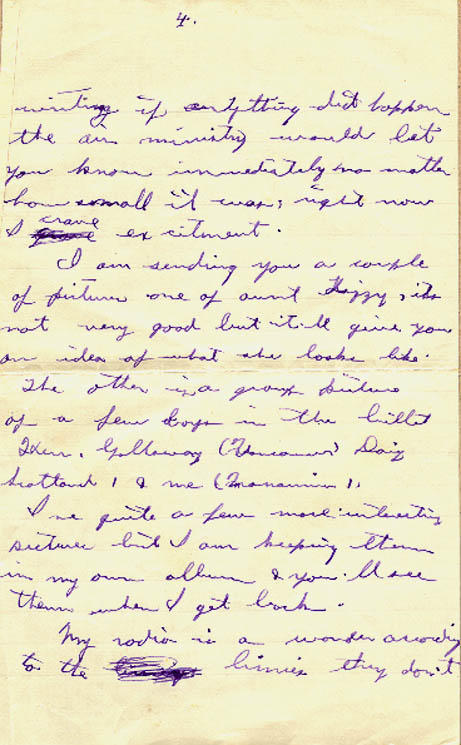 4.
writing if anything did happen
the air ministry would let
you know immediately no matter
how small it was; right now
I crave excitment.
I am sending you a couple
of pictures one of aunt Lizzy, its
not very good but it'll give you
an idea of what she looks like.
The other is a group picture
of a few boys in the billet
Galloway (Vancouver)
Scotland) & me (Nanaimo).
I've quite a few more interesting
pictures but I am keeping them
in my own album & you'll see
them when I get back.
My radio is a wonder according
to the limies they don't